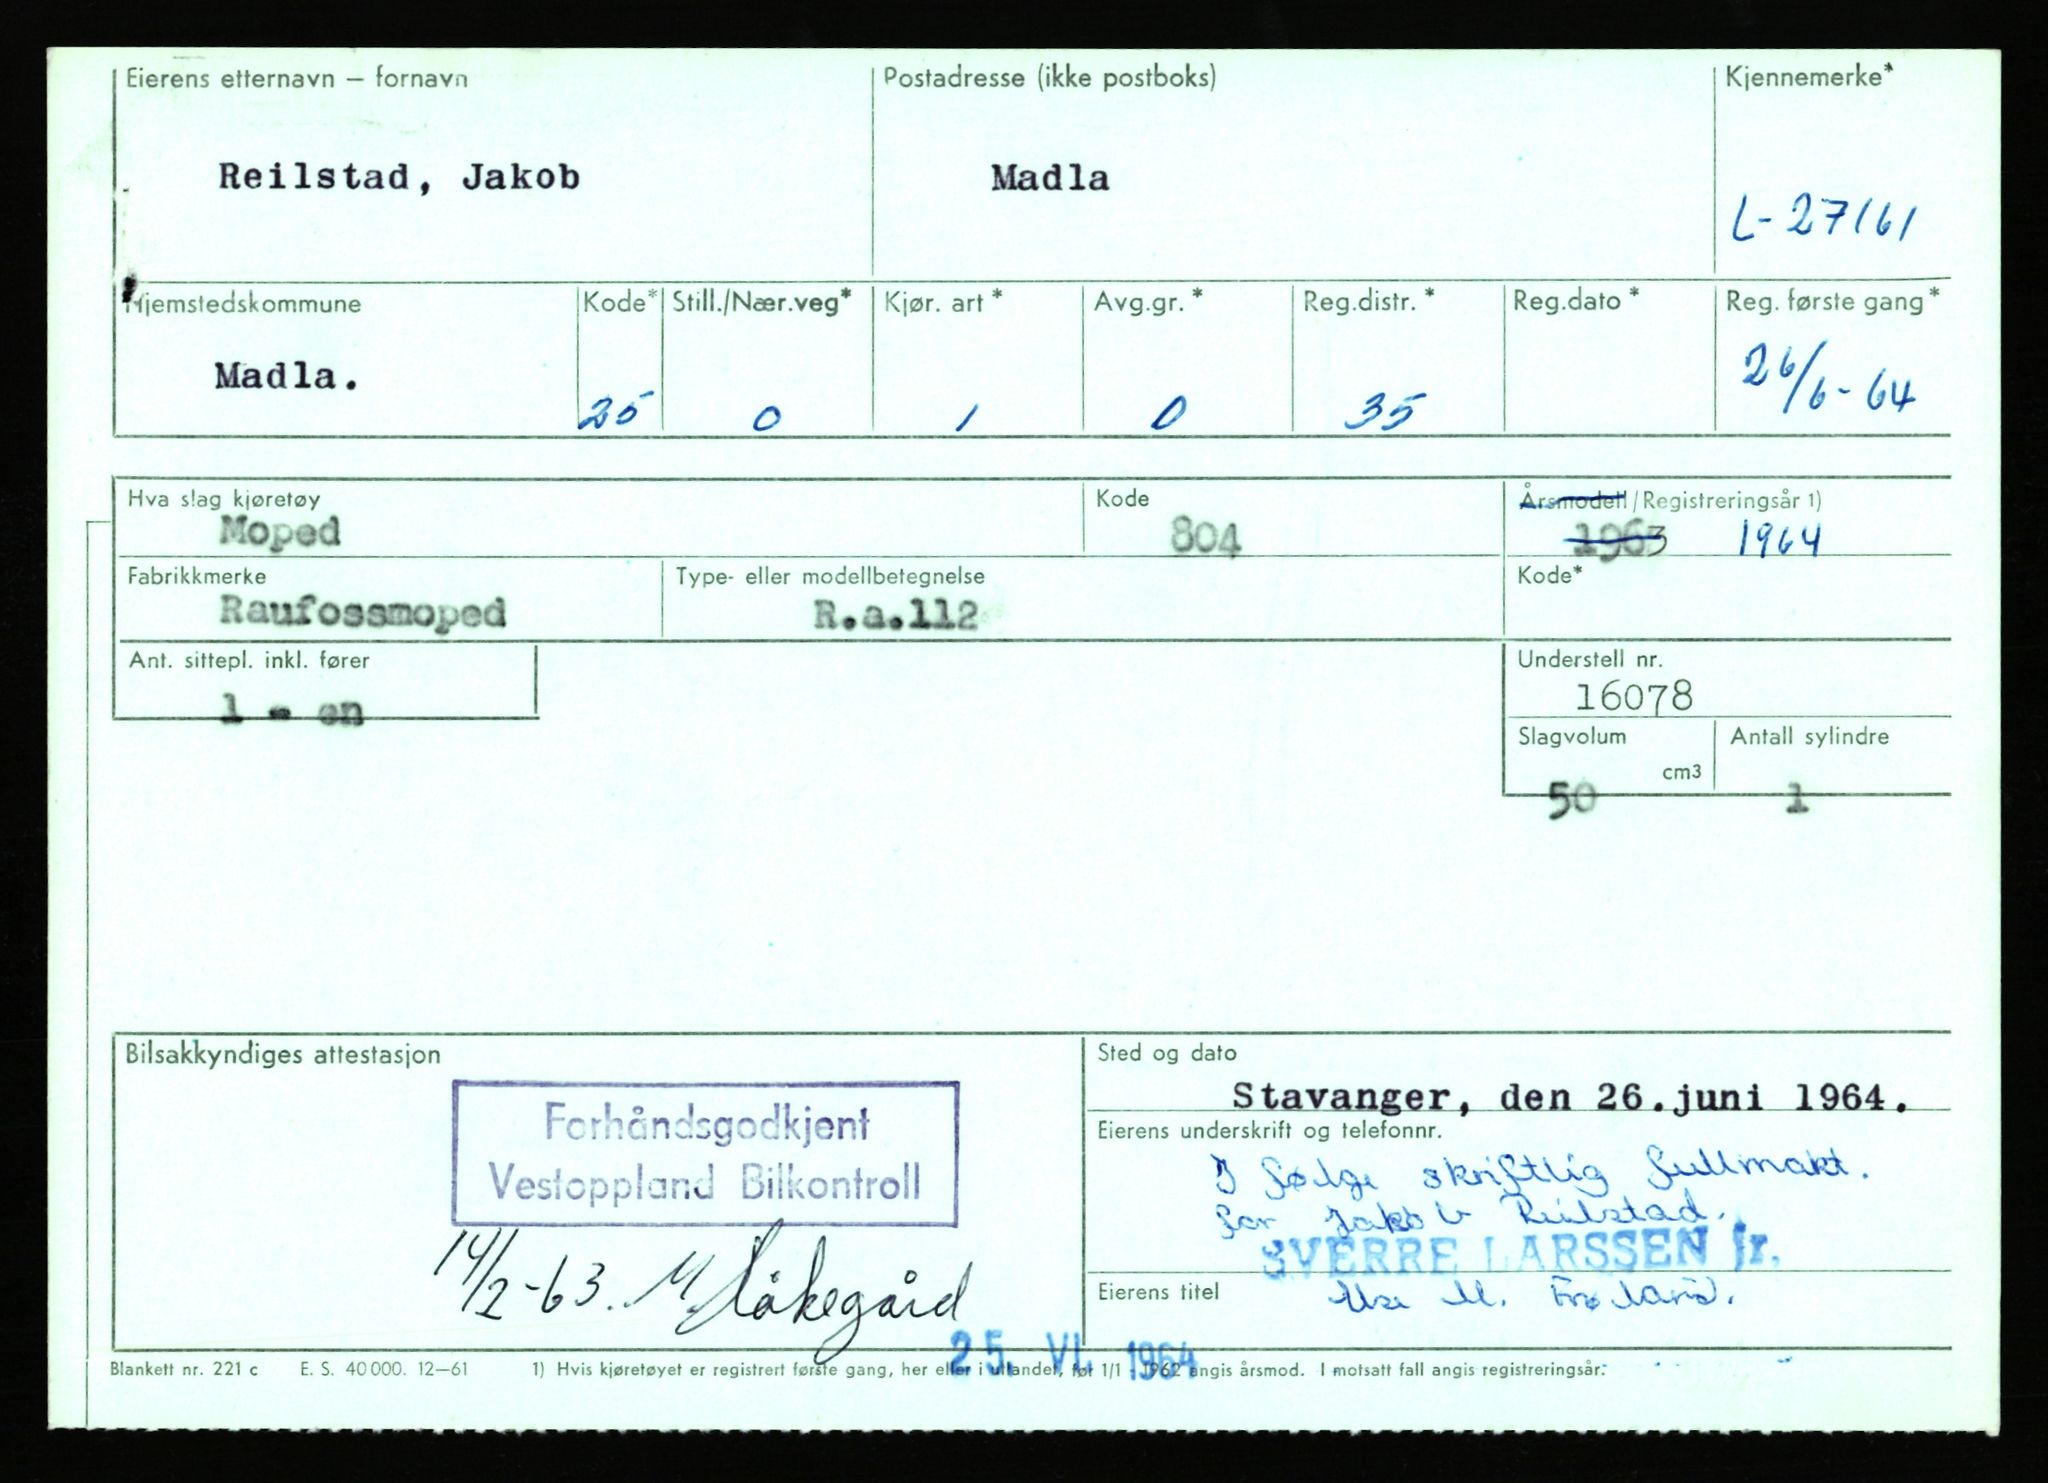 Eierens etternavn – fornavn
Postadresse (ikke postboks)
Kjennemerke*
Reilstad, Jakob
Madla
L-27161
Hjemstedskommune
Kode*
Still./Nær.veg*
Kjør. art *
Avg.gr. *
Reg.distr. *
Reg.dato *
Reg. første gang*
Madla.
25
0
1
0
35
26/6-64
Hva slag kjøretøy
Kode
Årsmodell/Registreringsår 1)
Moped
804
1963 1964
Fabrikkmerke
Type- eller modellbetegnelse
Kode*
Raufossmoped
R.a.112
Ant. sittepl. inkl. fører
Understell nr.
1 - en
16078
Slagvolum
Antall sylindre
cm3
50
1
Bilsakkyndiges attestasjon
Sted og dato
Forhåndsgodkjent
Vestoppland Bilkontroll
Stavanger, den 26.juni 1964.
Eierens underskrift og telefonnr.
I følge skriftlig fullmakt.
for Jakob Reilstad.
SVERRE LARSSEN Jr.
14/2-63.
Eierens titel
25. VI. 1964
Blankett nr. 221 c E. S. 40 000. 12—61 1) Hvis kjøretøyet er registrert første gang, her eller i utlandet, før 1/1 1962 angis årsmod. I motsatt fall angis registreringsår.